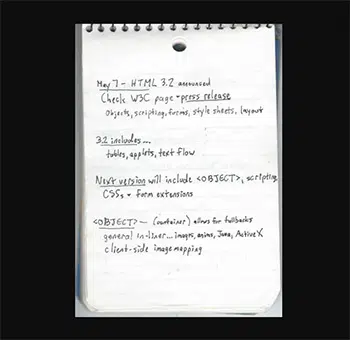 May 7 - HTML 3.2 announced
Check W3C page + press release
Objects, scripting, forms, style sheets, layout
3.2 includes...
tables, applets, text flow
Next version will include <OBJECT>, scripting,
CSSs + form extensions
<OBJECT> - (container) allows for fallbacks
general in-liner... images, anims, Java, ActiveX
client-side image mapping